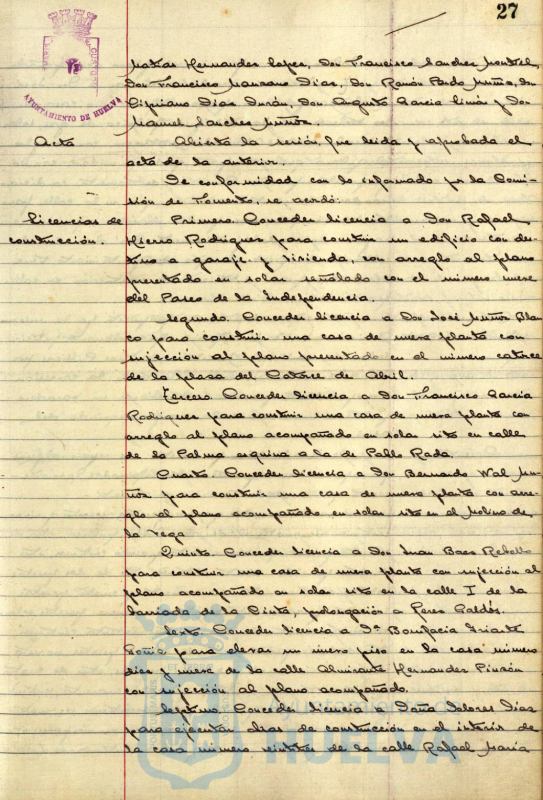 27
AYUNTAMIENTO DE HUELVA
Matías Hernández López, Don Francisco Sánchez Montiel,
Don Francisco Manzano Díaz, Don Ramón Pardo Muñiz, Don
Cipriano Díaz Durán, Don Augusto García Limón y Don
Manuel Sánchez Muñoz.
Acta
Abierta la sesión, fue leída y aprobada el
acta de la anterior.
De conformidad con lo informado por la Comi-
sión de Fomento, se acordó:
Licencias de
construcción.
Primero. Conceder licencia a Don Rafael
Hierro Rodríguez para construir un edificio con des-
tino a garaje y vivienda, con arreglo al plano
presentado en solar señalado con el número nueve
del Paseo de la Independencia.
Segundo. Conceder licencia a Don José Muñoz Blan
co para construir una casa de nueva planta con
sujección al plano presentado en el número catorce
de la plaza del Catorce de Abril.
Tercero. Conceder licencia a Don Francisco García
Rodríguez para construir una casa de nueva planta con
arreglo al plano acompañado en solar sito en calle
de la Palma esquina a la de Pablo Rada.
Cuarto. Conceder licencia a Don Bernardo Wal Mu-
ñoz para construir una casa de nueva planta con arre-
glo al plano acompañado en solar sito en el Molino de
la Vega
Quinto. Conceder licencia a Don Juan Baez Rebollo
para construir una casa de nueva planta con sujección al
plano acompañado en solar sito en la calle I de la
barriada de la Cinta, prolongación a Perez Galdós.
Sexto. Conceder licencia a Dª Bonifacia Iriarte
para elevar un nuevo piso en la casa número
diez y nueve de la calle Almirante Hernandez Pinzón
con sujección al plano acompañado.
Septimo. Conceder licencia a Doña Dolores Díaz
para ejecutar obras de construcción en el interior de
la casa número veintitrés de la calle Rafael María
HUELVA